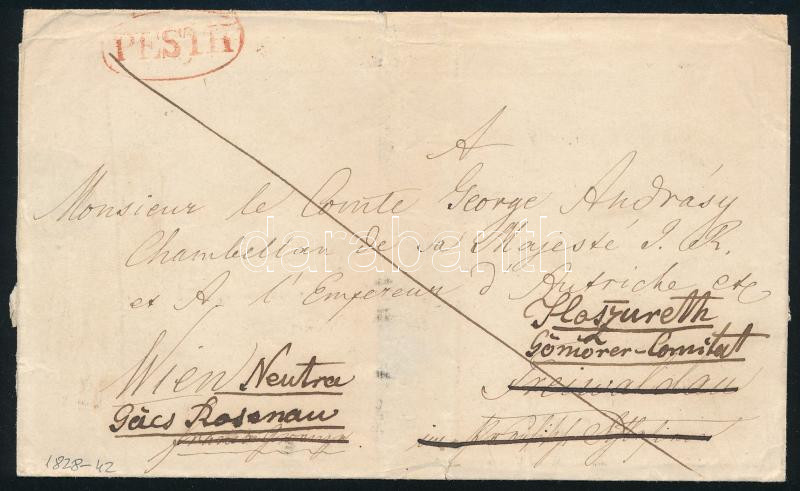 PESTH
A
Monsieur le Comte George Andrásy
Chambellan de sa Majesté I. R.
et A. l'Empereur d'Autriche etc
Hoszureth
Gömörer-Comitat
Wien Neutra
Freiwaldau
Gács Rosenau
darabanth
1828-42